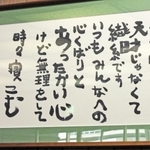 天財じゃなくて
です
いつもみんなへの
心くばりと
あったかい心
けど無理をして
時々寝こむ